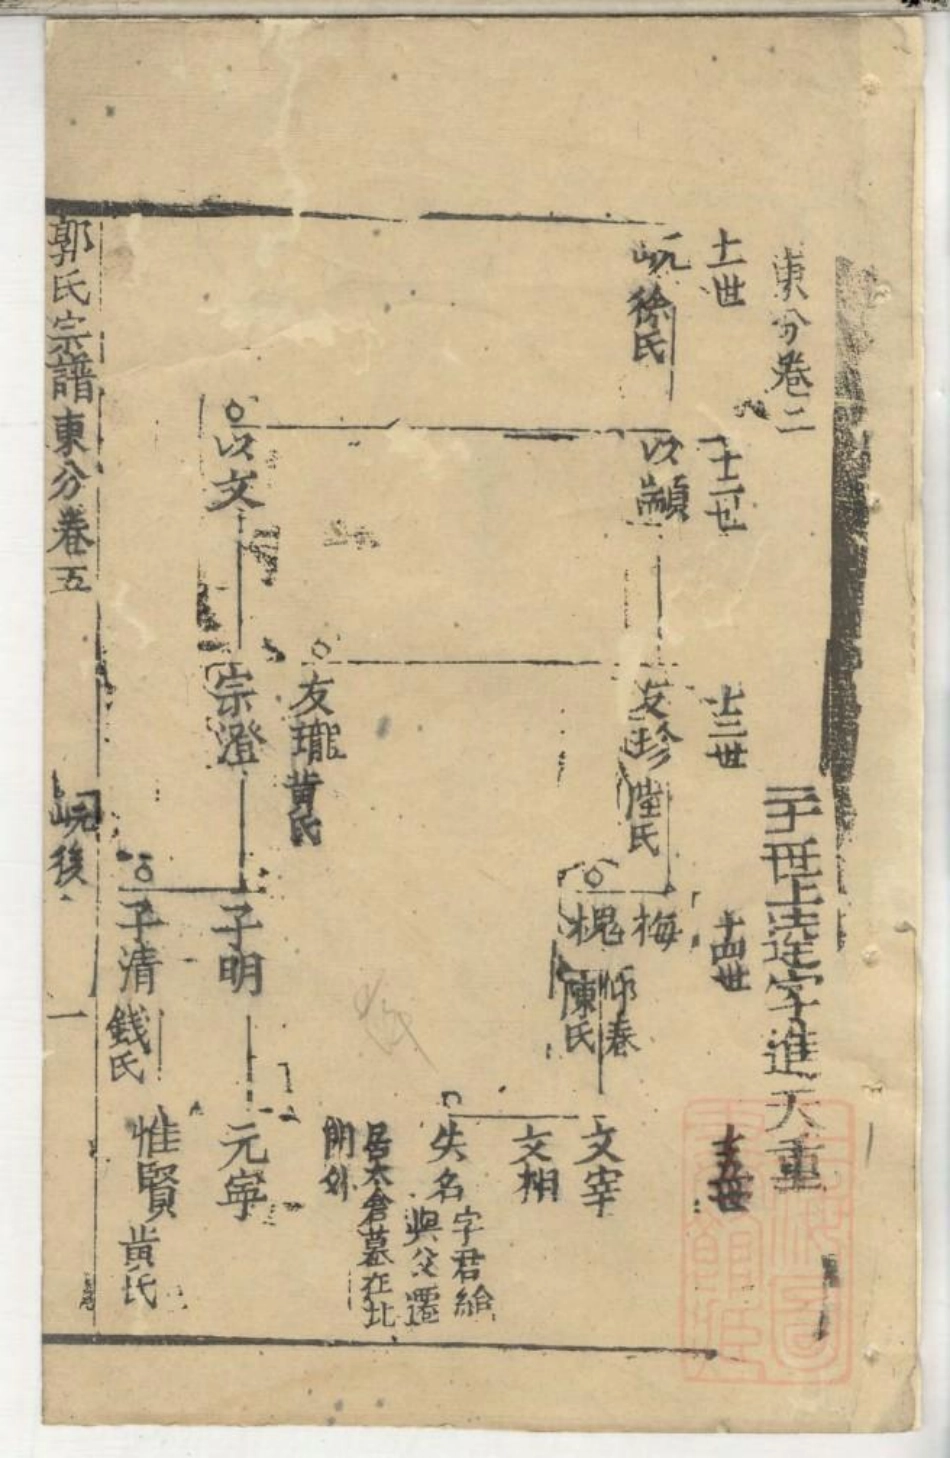 東分卷二
二十世上達字進天重
十一世
岏 徐氏
十二世
以顓
以文
十三世
友珍 陸氏
友瓏 黃氏
宗澄
十四世
梅 仰春
槐 陳氏
子明
子清 錢氏
十五世
文宰
文相
失名 字君給
與父遷
居太倉墓在北
門外
元寧
惟賢 黃氏
郭氏宗譜東分卷五 岏後 一